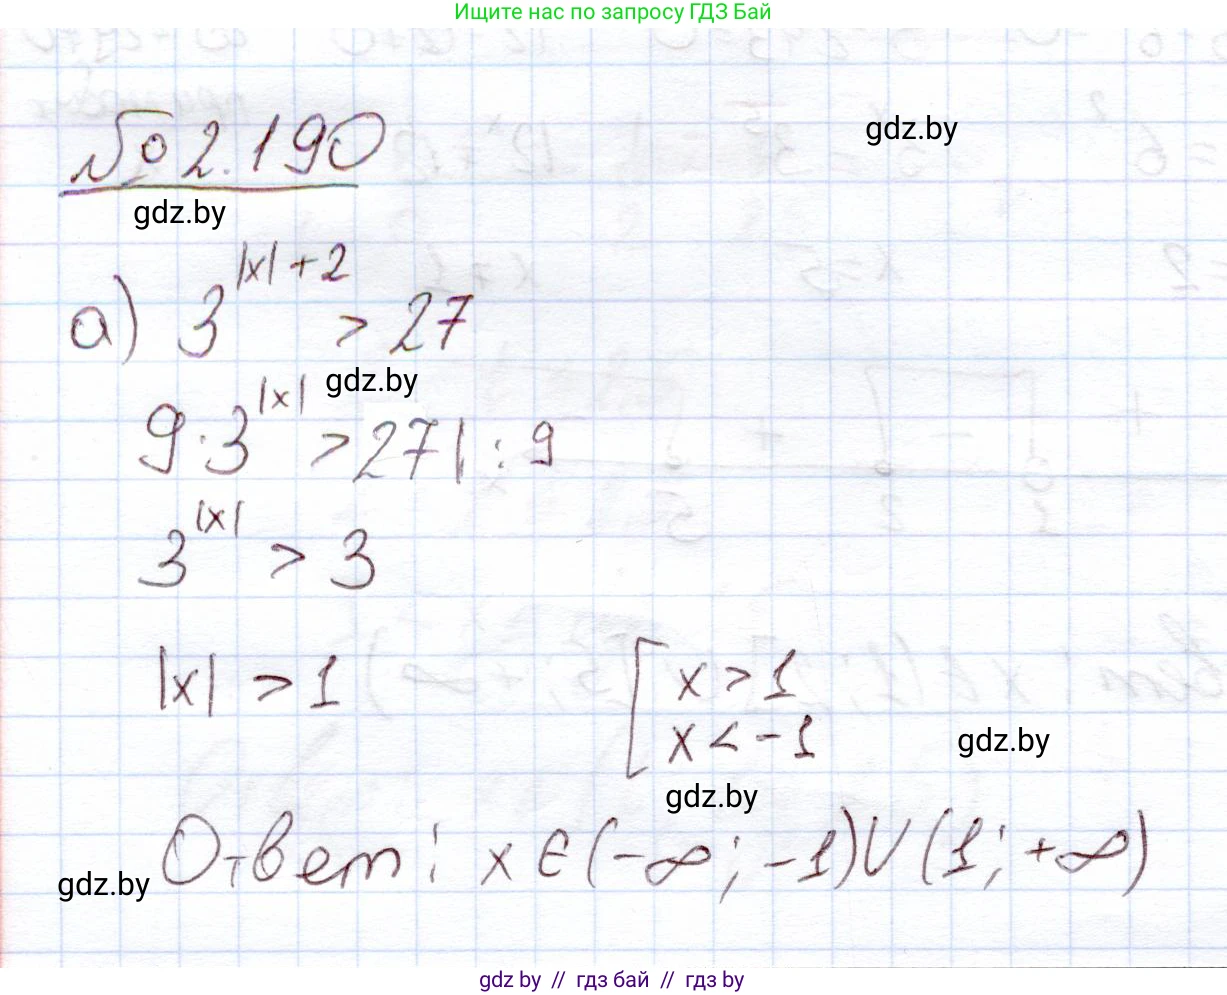 Ищите нас по запросу ГДЗ Бай
№ 2.190
gdz.by
gdz.by
а) 3^{|x|+2} > 27
gdz.by
9·3^{|x|} > 27 | : 9
3^{|x|} > 3
|x| > 1 [ x > 1
x < -1
gdz.by
gdz.by
Ответ: x ∈ (-∞; -1) ∪ (1; +∞)
gdz.by
gdz.by // гдз бай // gdz.by